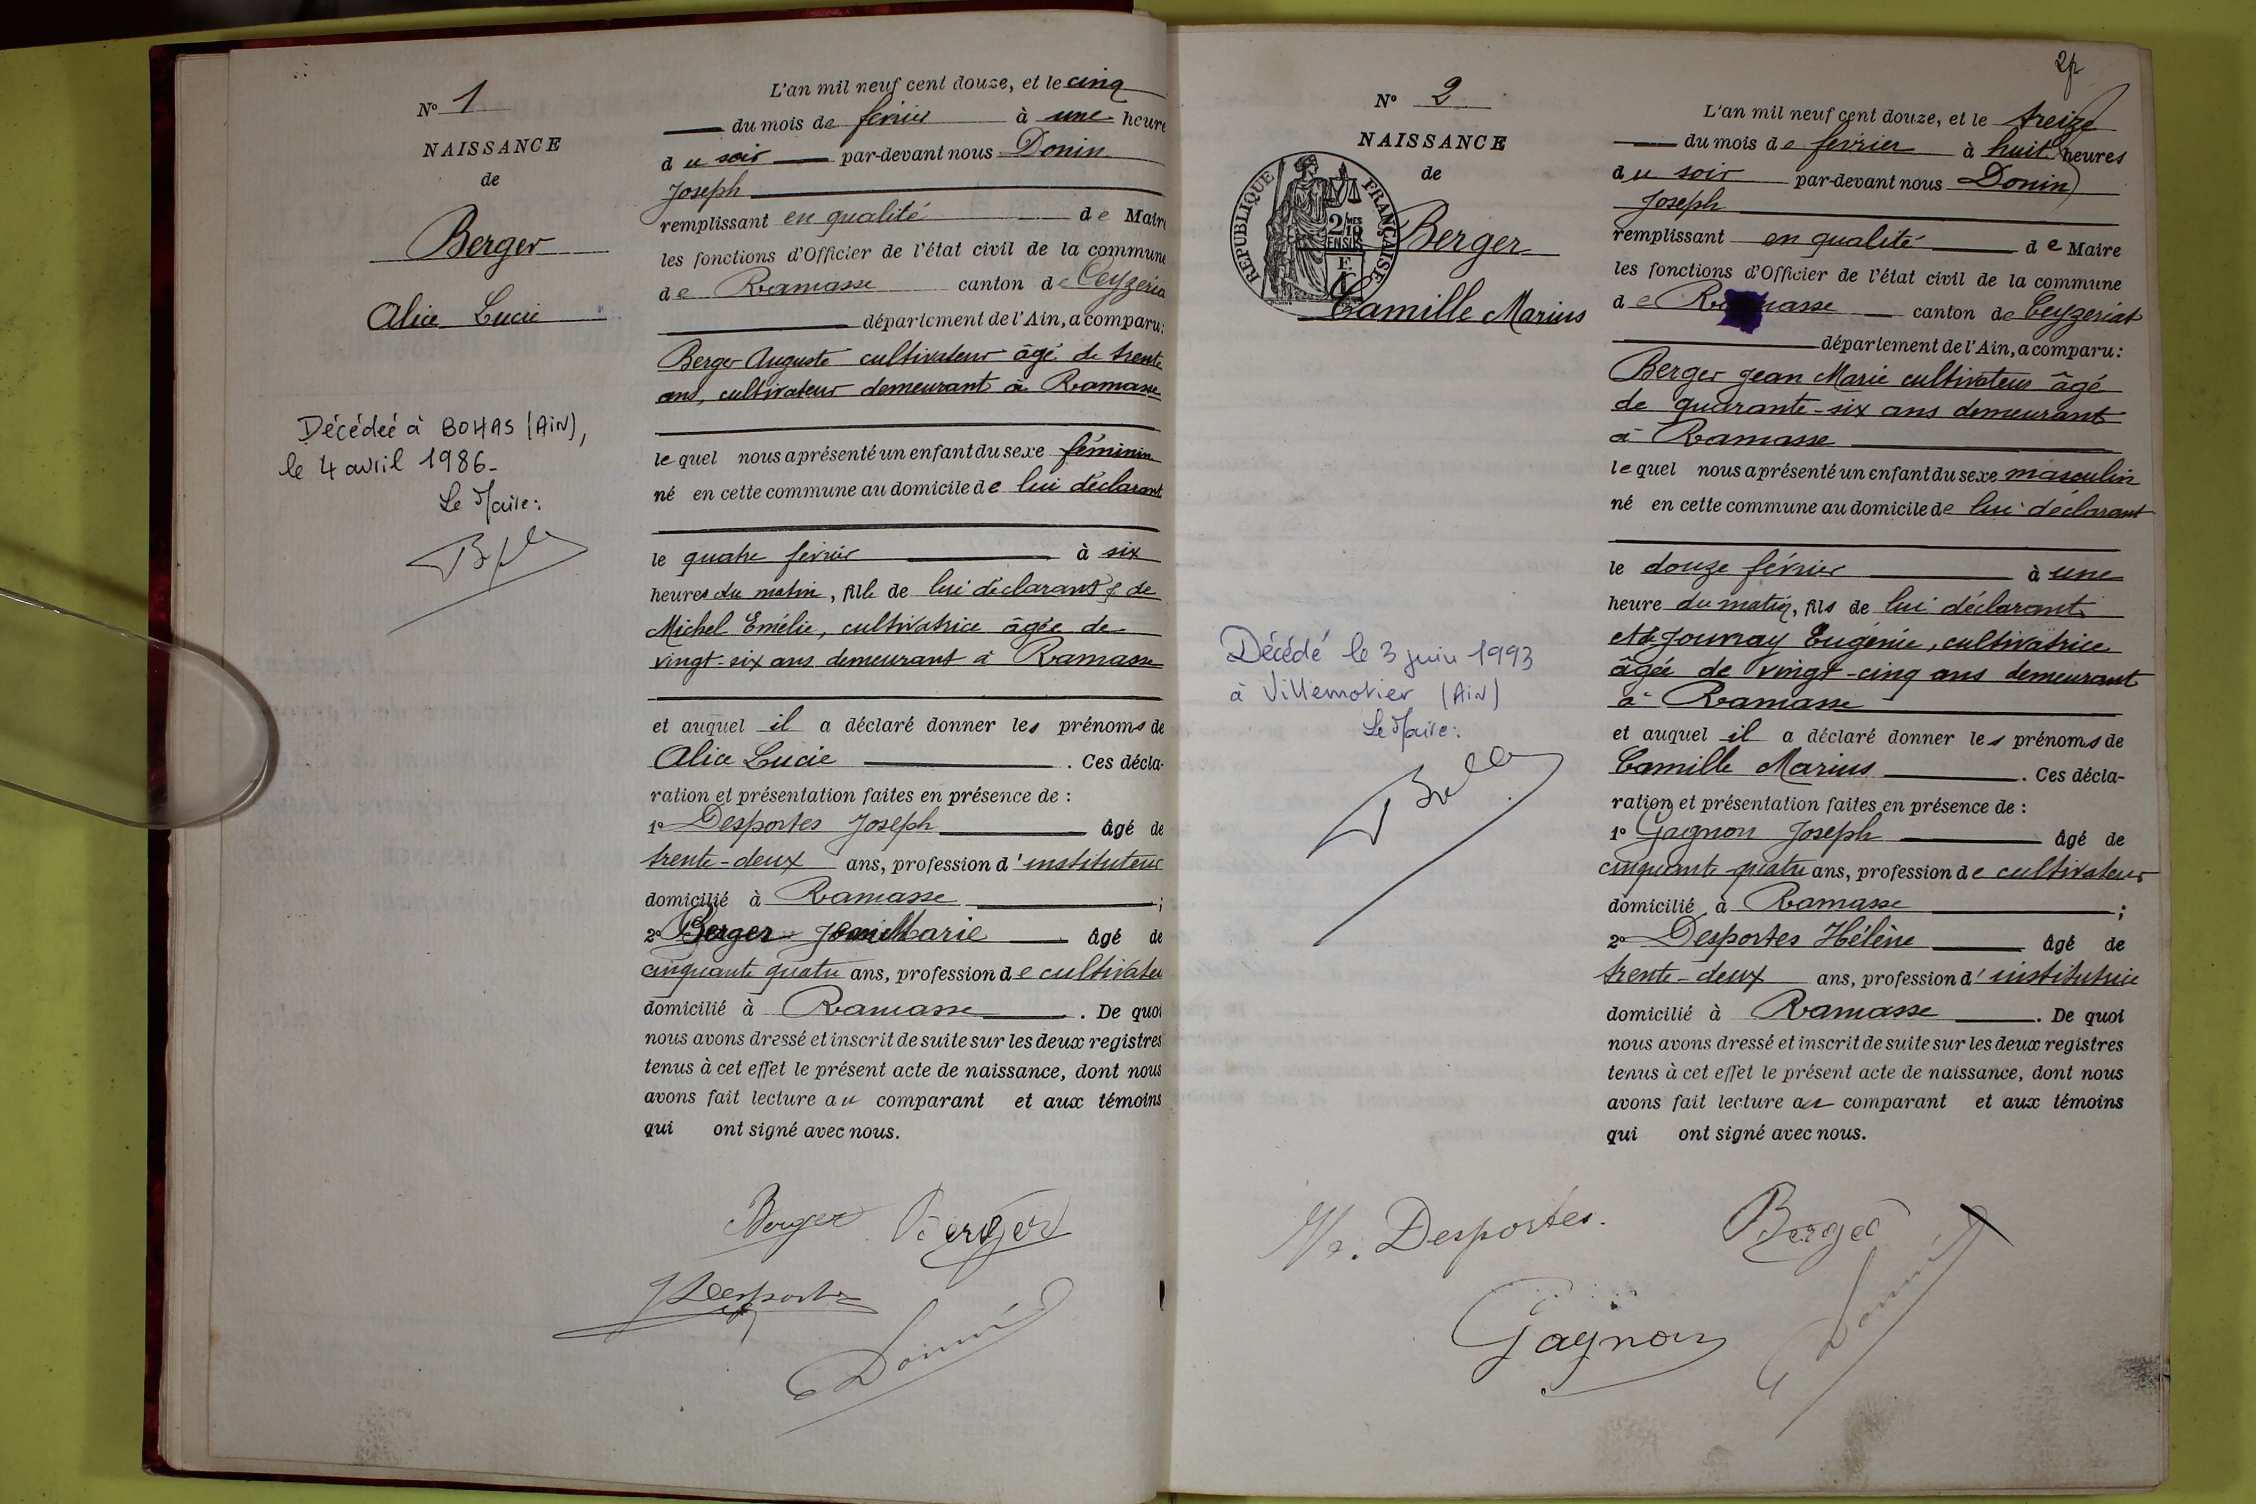 N° 1
NAISSANCE
de
Berger
Alice Lucie
Décédée à BOHAS (AiN),
le 4 avril 1986-
Le Maire:
L'an mil neuf cent douze, et le cinq
du mois de février à une heure
du soir par-devant nous Donin
Joseph
remplissant en qualité de Maire
les fonctions d'Officier de l'état civil de la commune
de Ramasse canton de Ceyzéria
département de l'Ain, a comparu:
Berger Auguste cultivateur âgé de trente
ans, cultivateur demeurant à Ramasse
le quel nous a présenté un enfant du sexe féminin
né en cette commune au domicile de lui déclarant
le quatre février à six
heures du matin, fille de lui déclarant & de
Michel Emélie, cultivatrice âgée de
vingt-six ans demeurant à Ramasse
et auquel il a déclaré donner les prénoms de
Alice Lucie . Ces décla-
ration et présentation faites en présence de :
1° Desportes Joseph âgé de
trente-deux ans, profession d'instituteur
domicilié à Ramasse ;
2° Berger Jean Marie âgé de
cinquante quatre ans, profession de cultivateu
domicilié à Ramasse . De quoi
nous avons dressé et inscrit de suite sur les deux registres
tenus à cet effet le présent acte de naissance, dont nous
avons fait lecture au comparant et aux témoins
qui ont signé avec nous.
Berger Berger
J Desportes
Donin
2
N° 2
NAISSANCE
de
RÉPUBLIQUE FRANÇAISE
2/10MES
EN SUS
Berger
Camille Marius
Décédé le 3 juin 1993
à Villemotier (AiN)
Le Maire:
L'an mil neuf cent douze, et le treize
du mois de février à huit heures
du soir par-devant nous Donin
Joseph
remplissant en qualité de Maire
les fonctions d'Officier de l'état civil de la commune
de Ramasse canton de Ceyzériat
département de l'Ain, a comparu:
Berger Jean Marie cultivateur âgé
de quarante-six ans demeurant
à Ramasse
le quel nous a présenté un enfant du sexe masculin
né en cette commune au domicile de lui déclarant
le douze février à une
heure du matin, fils de lui déclarant
et de Journay Eugénie, cultivatrice
âgée de vingt-cinq ans demeurant
à Ramasse
et auquel il a déclaré donner les prénoms de
Camille Marius . Ces décla-
ration et présentation faites en présence de :
1° Gagnon Joseph âgé de
cinquante quatre ans, profession de cultivateur
domicilié à Ramasse ;
2° Desportes Hélène âgé de
trente-deux ans, profession d'institutrice
domicilié à Ramasse . De quoi
nous avons dressé et inscrit de suite sur les deux registres
tenus à cet effet le présent acte de naissance, dont nous
avons fait lecture au comparant et aux témoins
qui ont signé avec nous.
Desportes. Berger
Gagnon Donin